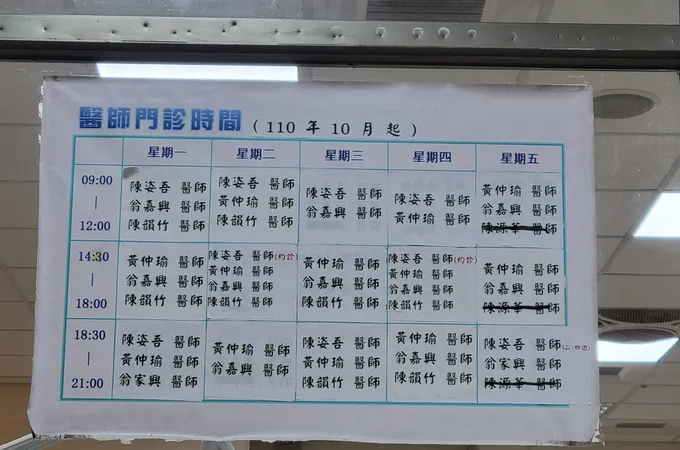 醫師門診時間（110 年 10 月 起）
星期一 星期二 星期三 星期四 星期五
09:00
|
12:00
陳姿吾 醫師
翁嘉興 醫師
陳韻竹 醫師
陳姿吾 醫師
黃仲瑜 醫師
陳韻竹 醫師
陳姿吾 醫師
翁嘉興 醫師
陳姿吾 醫師
黃仲瑜 醫師
黃仲瑜 醫師
翁嘉興 醫師
陳源華 醫師
14:30
|
18:00
黃仲瑜 醫師
翁嘉興 醫師
陳韻竹 醫師
陳姿吾 醫師(約診)
黃仲瑜 醫師
翁嘉興 醫師
陳韻竹 醫師
黃仲瑜 醫師
翁嘉興 醫師
陳韻竹 醫師
陳姿吾 醫師(約診)
黃仲瑜 醫師
翁嘉興 醫師
陳韻竹 醫師
黃仲瑜 醫師
翁嘉興 醫師
陳源華 醫師
18:30
|
21:00
陳姿吾 醫師
黃仲瑜 醫師
翁家興 醫師
黃仲瑜 醫師
翁嘉興 醫師
陳姿吾 醫師
黃仲瑜 醫師
陳韻竹 醫師
黃仲瑜 醫師
翁嘉興 醫師
陳韻竹 醫師
陳姿吾 醫師(二.四週)
翁家興 醫師
陳源華 醫師